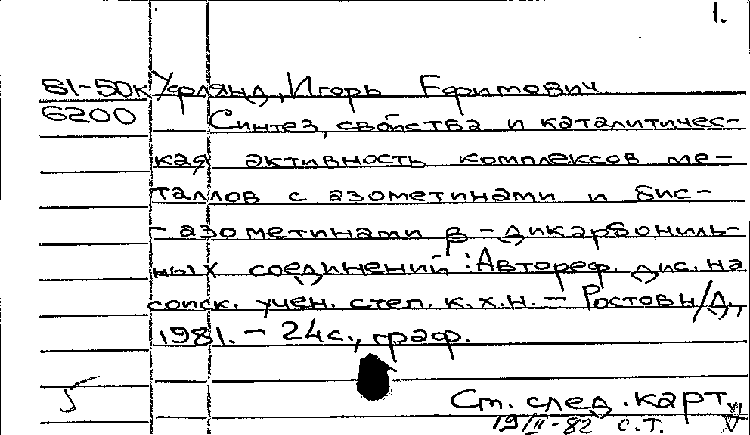 1.
Б1-50к Уфлянд, Игорь Ефимович
6200 Синтез, свойства и каталитичес-
кая активность комплексов ме-
таллов с азометинами и бис-
-азометинами β-дикарбониль-
ных соединений: Автореф. дис. на
соиск. учен. степ. к.х.н. - Ростов н/Д,
1981. - 24с., граф.
5 См. след. карт.
19/II-82 С.Т.